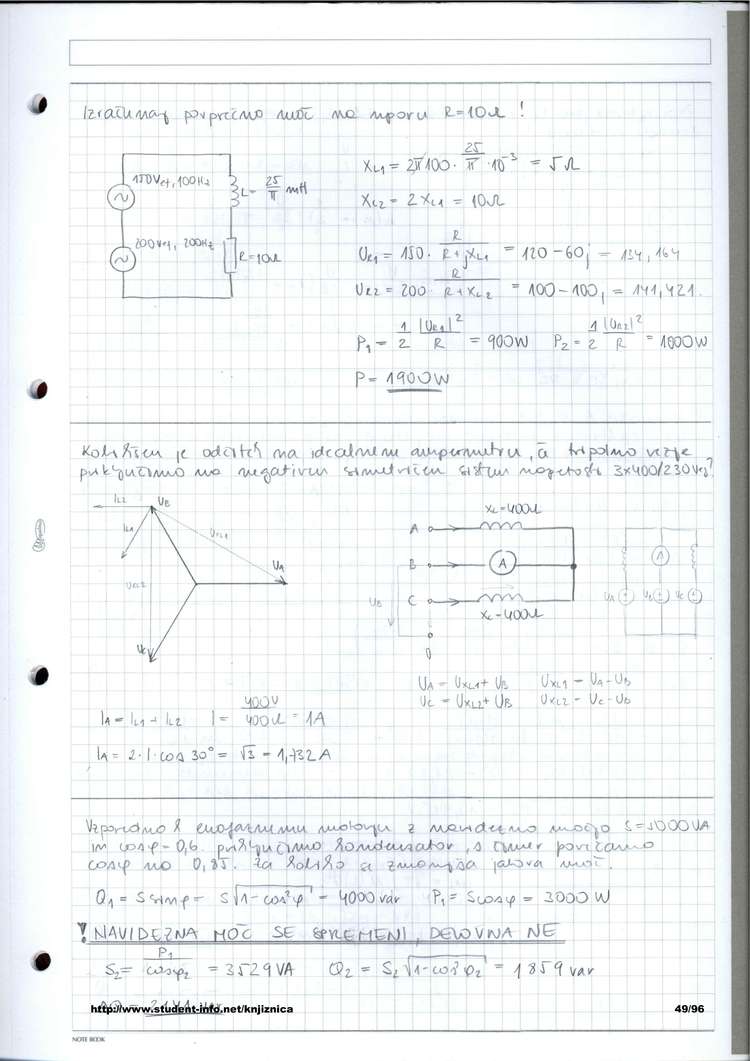 Izračunaj povprečno moč na uporu R=10Ω !
150Vef, 100Hz
L= 25/π mH
200Vef, 200Hz
R=10Ω
XL1 = 2π100 · 25/π · 10⁻³ = 5Ω
XL2 = 2XL1 = 10Ω
UR1 = 150 · R/(R+jXL1) = 120-60j = 134,164
UR2 = 200 · R/(R+XL2) = 100-100j = 141,421
P1 = 1/2 |UR1|²/R = 900W P2 = 1/2 |UR2|²/R = 1000W
P = 1900W
Kolikšen je odčitek na idealnem ampermetru, če tripolno vezje
priključimo na negativen simetričen sistem napetosti 3x400/230Vef?
IL2 UB
IL1
UXL1
UA
UXL2
UC
XL=400Ω
A
B
A
C
XL=400Ω
UB
0
A
UA UB UC
UA = UXL1 + UB UXL1 = UA - UB
UC = UXL2 + UB UXL2 = UC - UB
IA = IL1 + IL2 I = 400V/400Ω = 1A
IA = 2·I·cos 30° = √3 = 1,732A
Vzporedno k enofaznemu motorju z navidezno močjo S=5000VA
in cosφ=0,6 priključimo kondenzator, s čimer povečamo
cosφ na 0,85. Za koliko se zmanjša jalova moč.
Q1 = S sinφ = S√1-cos²φ = 4000 var P1 = S cosφ = 3000 W
! NAVIDEZNA MOČ SE SPREMENI, DELOVNA NE
S2 = P1/cosφ2 = 3529VA Q2 = S2√1-cos²φ2 = 1859 var
http://www.student-info.net/knjiznica 49/96
NOTE BOOK